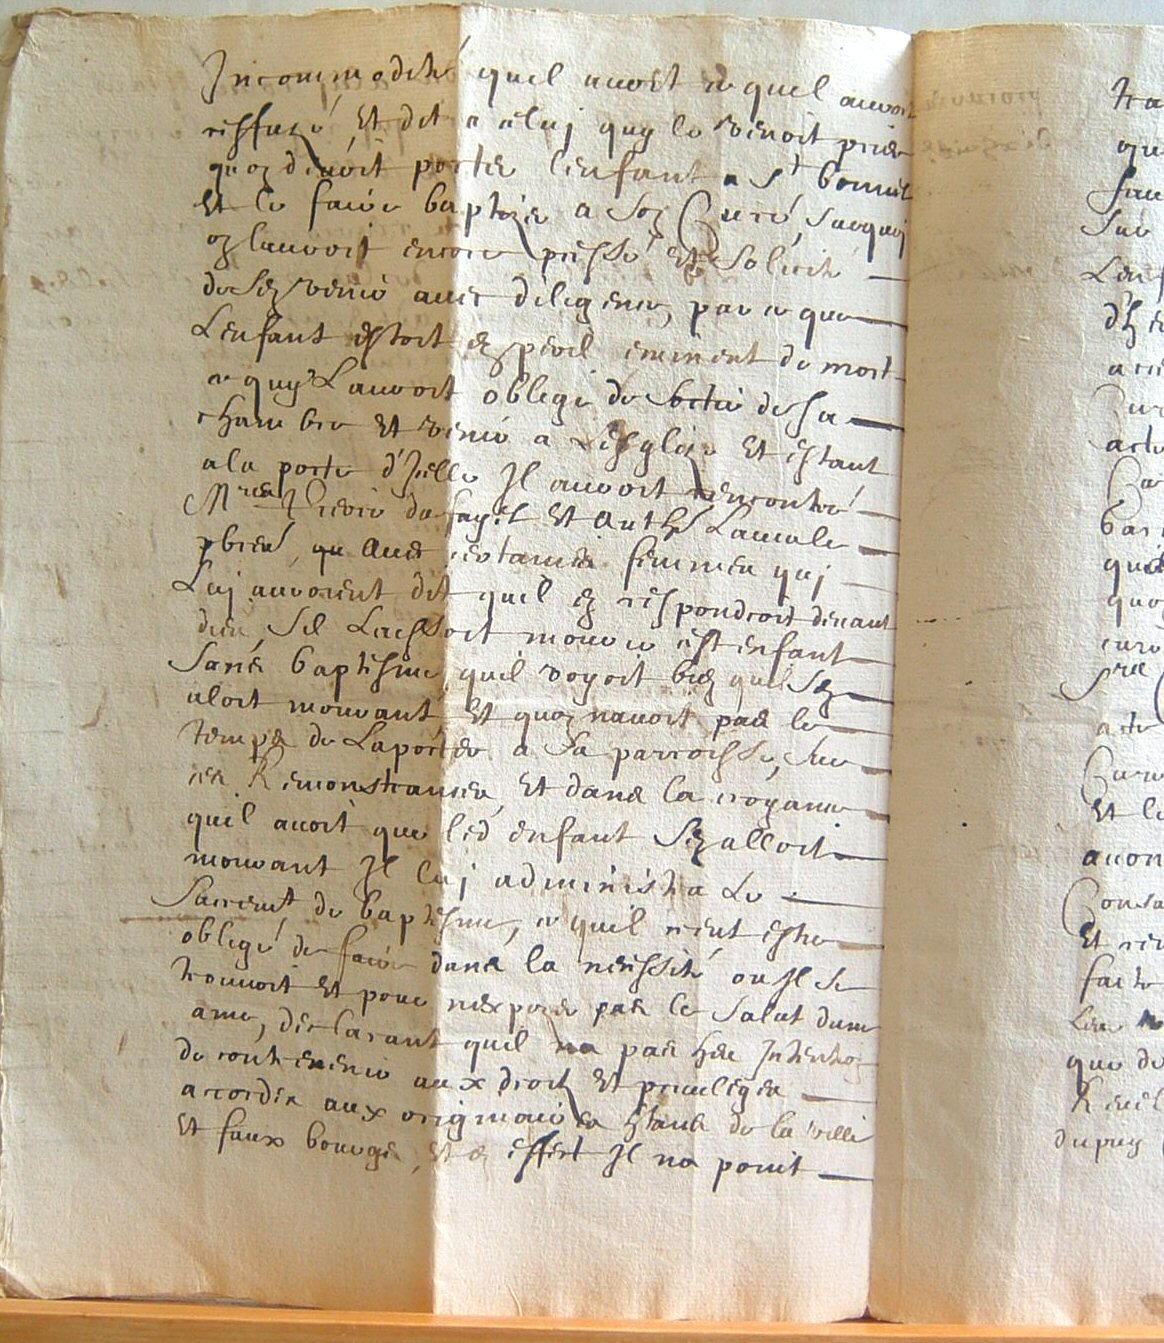 Incommodité quil avoit ce quel avoit
reffuzé Et dit a celuj quy le venoit prier
quon devoit porter lenfant a St bonnet
Et le faire baptizer a son Curé, surquoj
on lauvoit encore pressé Et Solicité
de sen venir avec diligence, par ce que
Lenfant estoit en peril eminent de mort
ce quy Lauvoit obligé de sortir de sa
chambre Et venir a Lesglize Et estant
a la porte d'Jelle Jl auvoit rencontré
Mres du fayet Et Anthe Lacuale
pbres, ou Avec certaines femmes quj
Luj auvoient dit quil en respondroit devant
dieu, Sil Laissoit mourir cest enfant
Sans baptesme, quil voyoit bien quil sen
aloit mourant Et quon navoit pas le
temps de Laporter a Sa parroisse, sur
ces Remonstrances, Et dans la croyance
quil avoit que led enfant sen alloit
mourant Jl luj administra Le
Sacremt de baptesme, ce quil creut estre
obligé de faire dans la necessité ou Jl se
trouvoit Et pour nexpozer pas le salut dune
ame, declarant quil na pas heu Intention
de contrevenir aux droitz Et privileges
accordes aux originaires hans de la ville
Et faux bourgs, Et en effect Jl na point